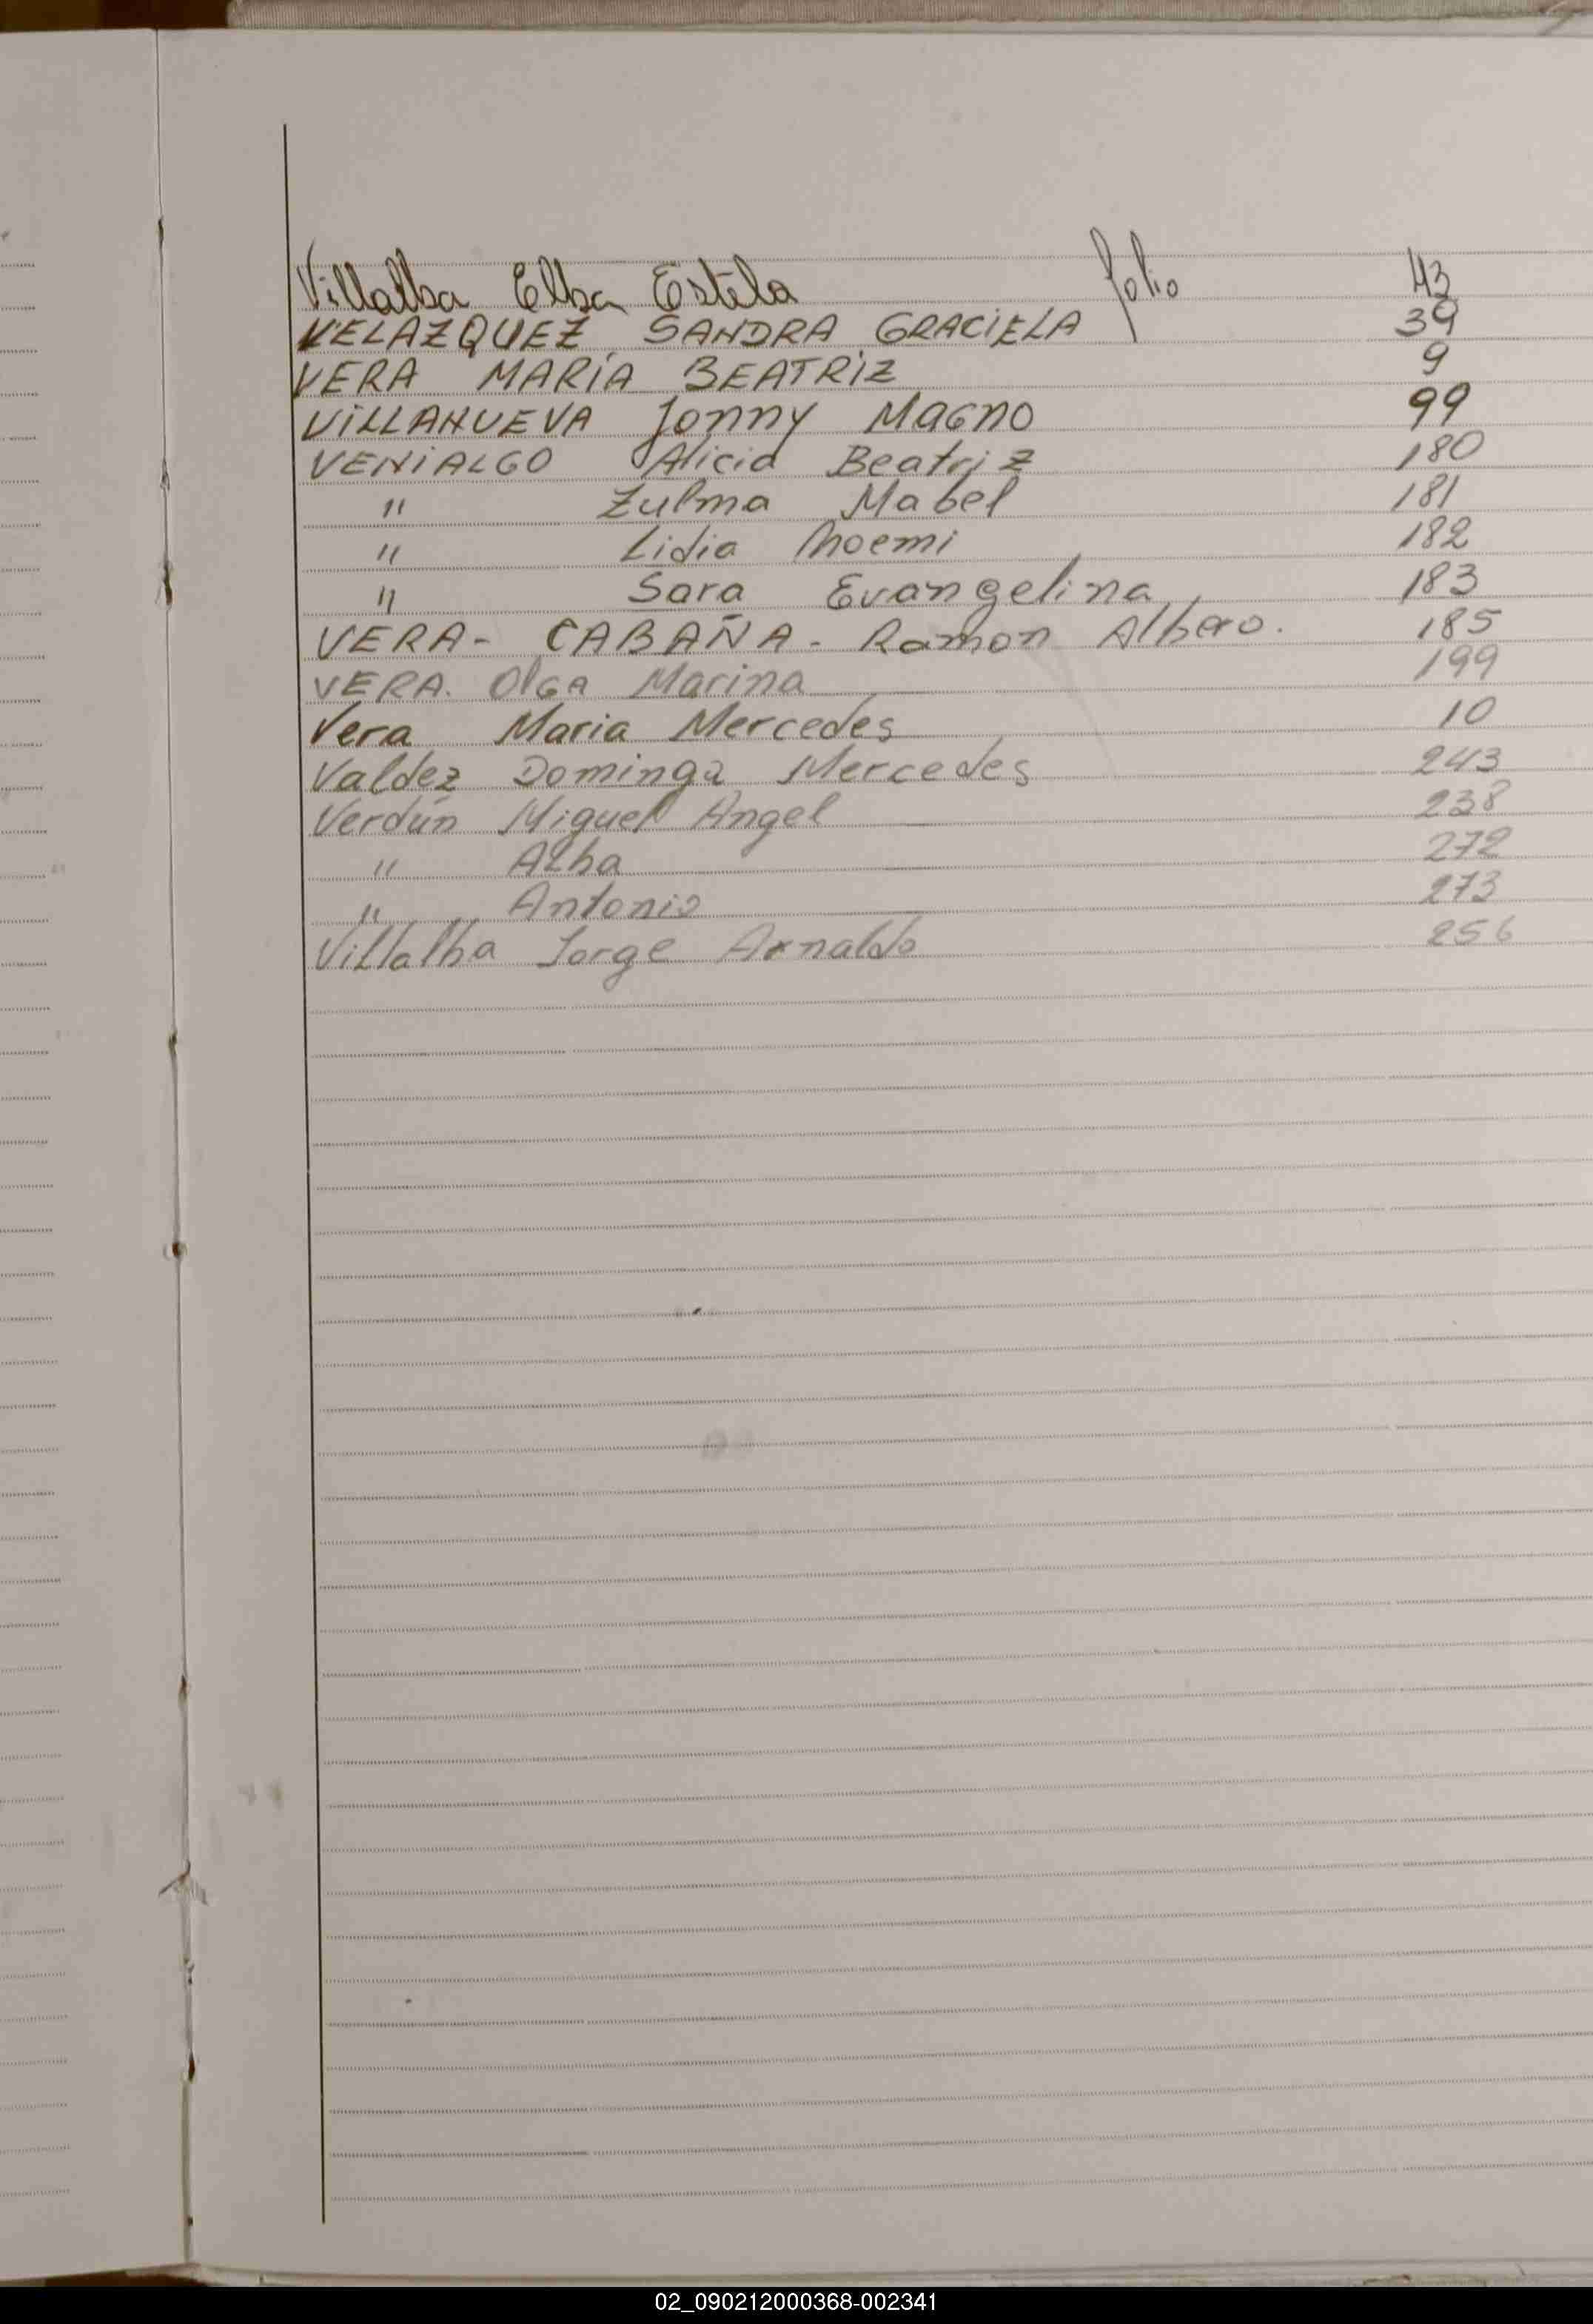 Villalba Elba Estela folio 43
VELAZQUEZ SANDRA GRACIELA 39
VERA MARÍA BEATRIZ 9
VILLANUEVA Jonny MAGNO 99
VENIALGO Alicia Beatriz 180
" Zulma Mabel 181
" Lidia Noemi 182
" Sara Evangelina 183
VERA - CABAÑA - Ramon Albero. 185
VERA. Olga Marina 199
Vera Maria Mercedes 10
Valdez Dominga Mercedes 243
Verdún Miguel Angel 238
" Alba 272
" Antonio 273
Villalba Jorge Arnaldo 256
02_090212000368-002341